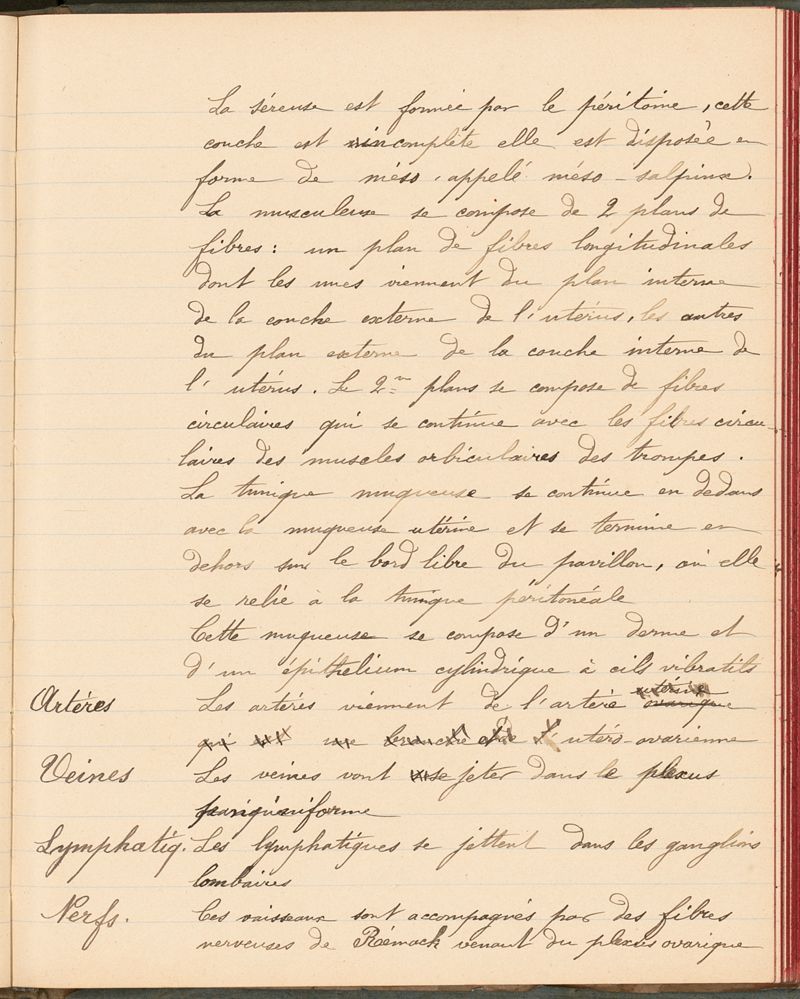 La séreuse est formée par le péritoine, cette
couche est incomplète elle est disposée en
forme de méso, appelé méso-salpinx.
La musculeuse se compose de 2 plans de
fibres : un plan de fibres longitudinales
dont les unes viennent du plan interne
de la couche externe de l'utérus, les autres
du plan externe de la couche interne de
l'utérus. Le 2m plans se compose de fibres
circulaires qui se continue avec les fibres circu-
laires des muscles orbiculaires des trompes.
La tunique muqueuse se continue en dedans
avec la muqueuse utérine et se termine en
dehors sur le bord libre du pavillon, où elle
se relie à la tunique péritonéale
Cette muqueuse se compose d'un derme et
d'un épithelium cylindrique à cils vibratils
Artères Les artères viennent de l'artère utérine ovarique
qui une branche de l'utéro-ovarienne
Veines Les veines vont se jeter dans le plexus
pampiniforme
Lymphatiq. Les lymphatiques se jettent dans les ganglions
lombaires
Nerfs. Ces vaisseaux sont accompagnés par des fibres
nerveuses de Rémack venant du plexus ovarique